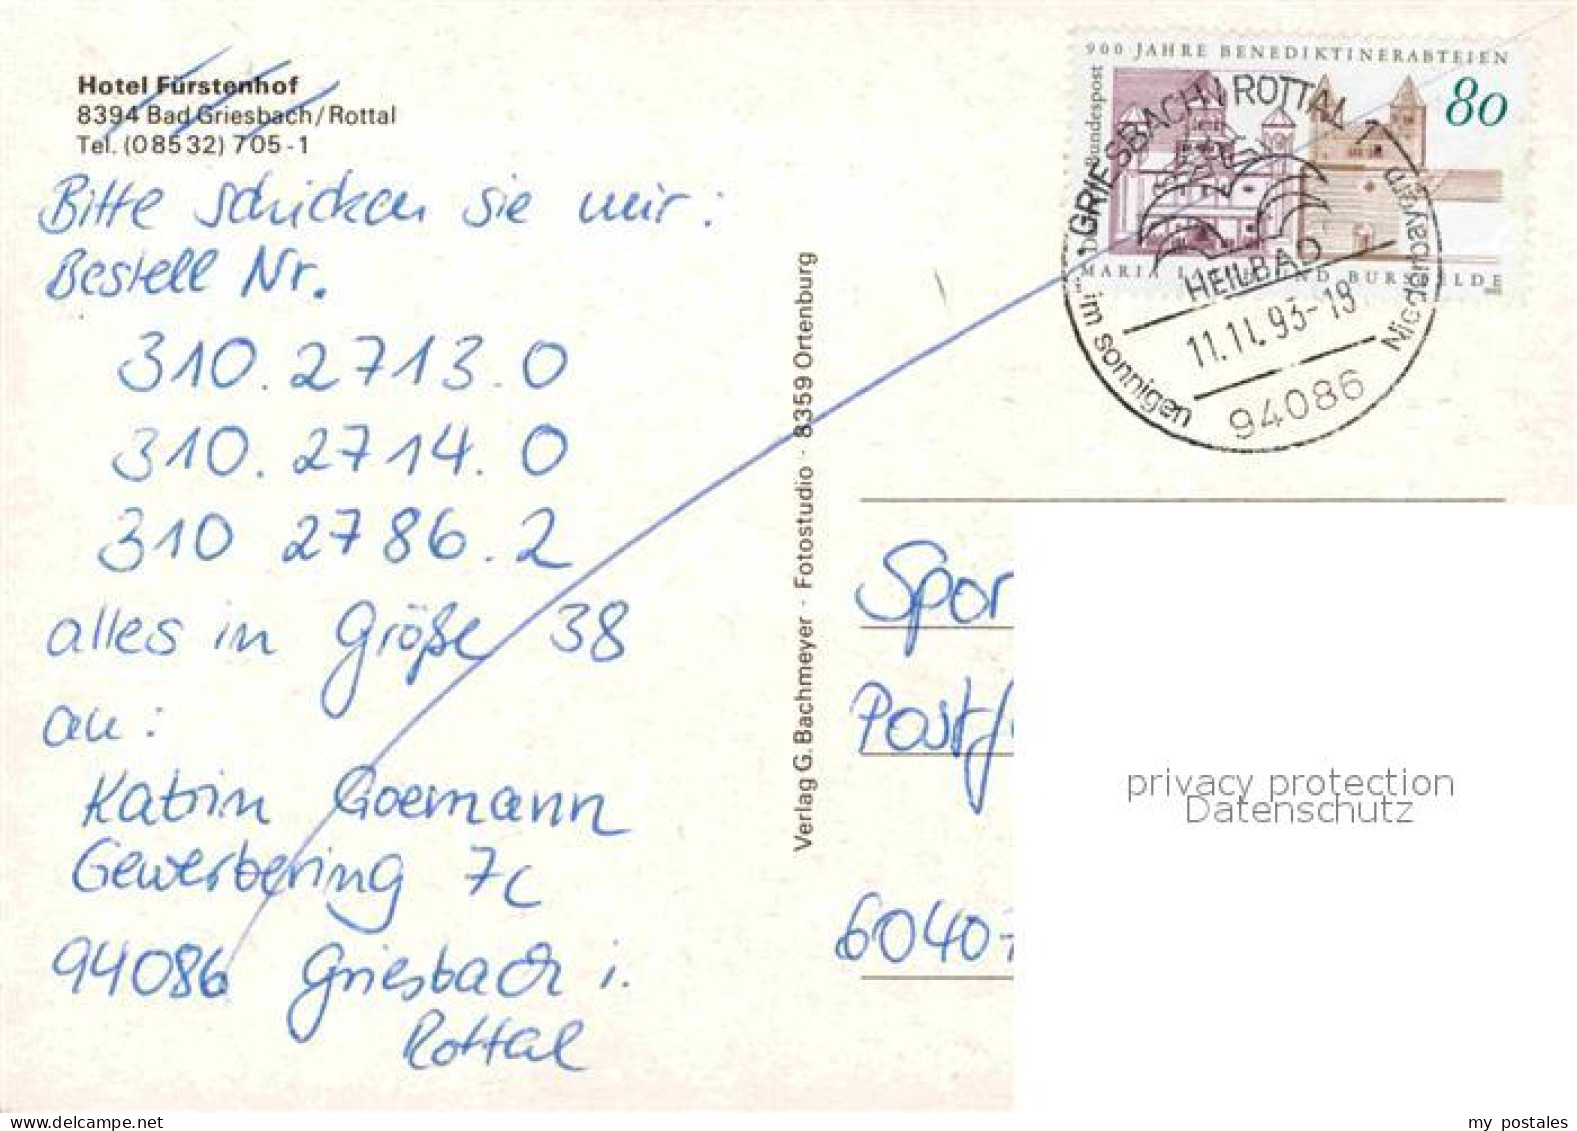 Hotel Fürstenhof
8394 Bad Griesbach/Rottal
Tel. (08532) 705-1
Bitte schicken sie mir:
Bestell Nr.
310.2713.0
310.2714.0
310 2786.2
alles in Größe 38
an:
Katrin Goemann
Gewerbering 7c
94086 Griesbach i.
Rottal
Verlag G. Bachmeyer · Fotostudio · 8359 Ortenburg
900 JAHRE BENEDIKTINERABTEIEN
80
Bundespost
MARIA
BURSFELDE
GRIESBACH I ROTTAL 1
HEILBAD
11.11.93-19
94086
"im sonnigen
Niederbayern
Spor
Postf
6040-
privacy protection
Datenschutz
my postales